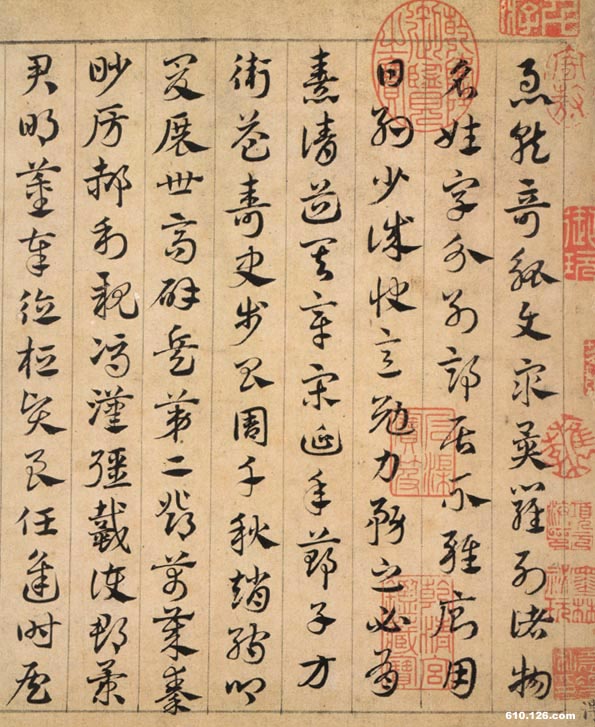 急就奇觚與眾異羅列諸物
名姓字分別部居不雜廁用
日約少誠快意勉力務之必有
憙請道其章宋延年鄭子方
衛益壽史步昌周千秋趙孺卿
爰展世高辟兵第二鄧萬歲秦
眇房郝利親馮漢彊戴護郡景
君明董奉德桓賢良任逢時侯
610.126.com